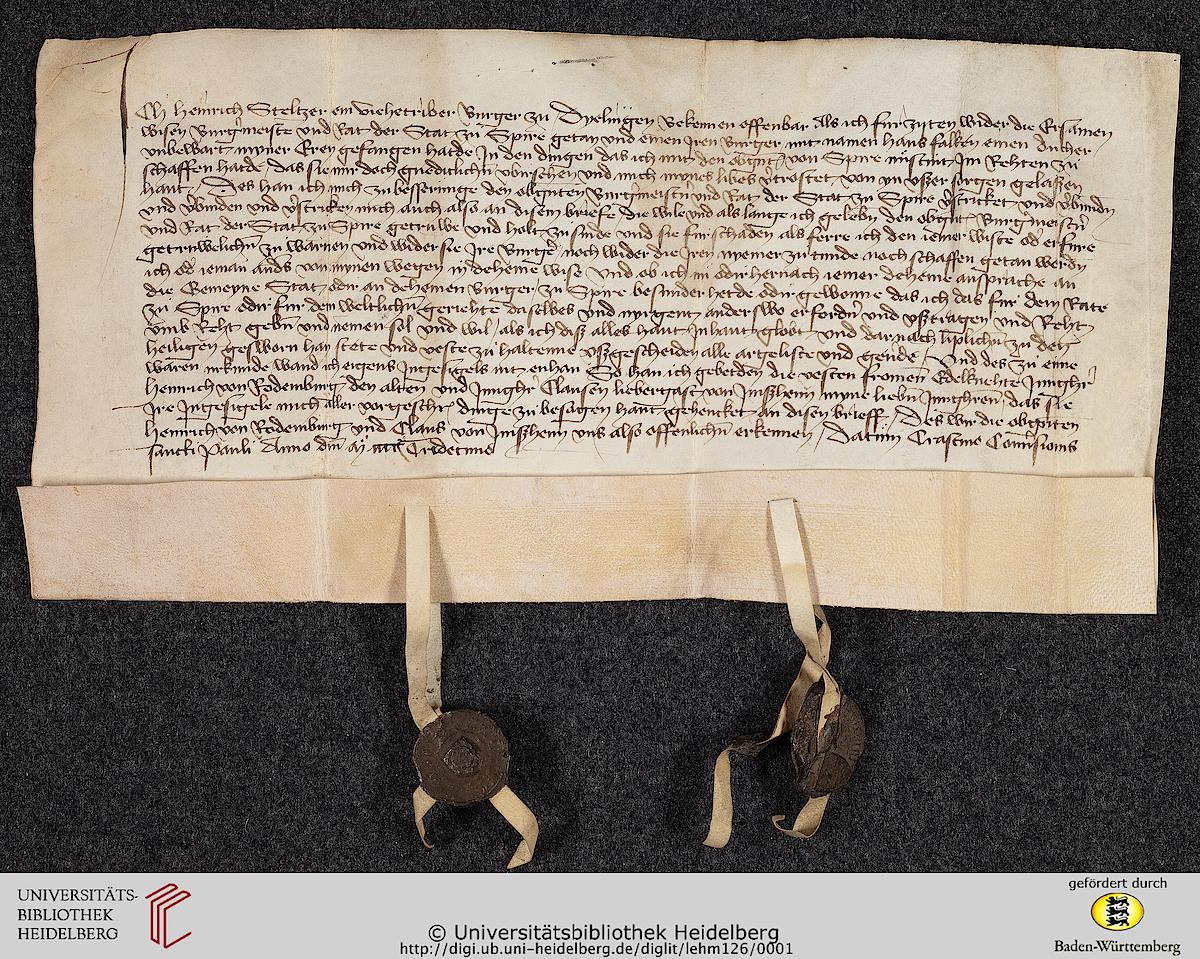 Ich Heinrich Steltzer ein viehetriber Burger zu Dyelingen Bekennen offenbar Als ich fur zyten wider die Ersamen
wisen Burgmeistere und Rat der Stat zu Spire getan und einen Iren Burger mit namen Hans falken einen ducher
unbewart myner Eren gefangen hatde In den dingen das ich mit den obgnten von Spire nust mit Im Rehten zu
schaffen hatde, das sie mir doch gnediclichn ubersehen und mich mynes libes vtrostet von In usser sorgen gelassen
hant, Des han ich mich zu besserunge den obgnten Burgmeistn und Rat der Stat zu Spire vstricket und vbunden
und vbinden und vstricken mich auch also an disem briefe die wile und als lange ich gelebn den obgnt Burgmeistn
und Rat der Stat zu Spire getruwe und holt zu sinde und sie fur schaden als ferre ich den iemer wiste od erfure
getruwelichn zu warnen und wider sie Ire Burgr noch wider die Iren nyemer zu tunde noch schaffen getan werdn
ich od ieman anders von mynen wegen in deheine wise Und ob ich nu odir hernach iemer deheine ansprache an
die Gemeyne Stat odir an deheinen Burger zu Spire besunder hetde odir gewonne das ich das fur dem Rate
zu Spire odir fur dem weltlichn gerichte daselbes und nyrgent anderswo erfordn und usztragen und Reht
umb Reht gebn und nemen sol und wil, als ich disz alles hant Inhant globt und darnach liplichn zu den
heiligen gesworn han stete und veste zu haltenne uszgescheiden alle argeliste und geude, Und des zu eine
waren urkunde wand ich eigens Ingesigels nit enhan So han ich gebetden die vesten fromen Edelknehte Junghr
Heinrich von Rodemburg den alten und Junghr Clausen liebergast von Inszheim myne liebn Junghren, das sie
Ire Ingesigele mich aller vorgeschr dinge zu besagen hant gehencket an disen brieff, Des wir die obgnten
Heinrich von Rodemburg und Claus von Inszheim uns also offenlichn erkennen, Datum Crastino Conversionis
sancti Pauli Anno dni M cccc Tridecimo
UNIVERSITÄTS-
BIBLIOTHEK
HEIDELBERG
© Universitätsbibliothek Heidelberg
http://digi.ub.uni-heidelberg.de/diglit/lehm126/0001
gefördert durch
Baden-Württemberg